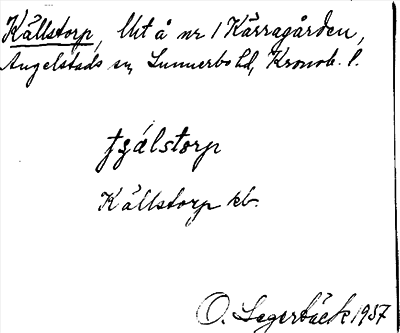 Källstorp, Utå nr 1 Kärragården,
Angelstads sn, Sunnerbo hd, Kronob. l.
Källstorp kb.
O. Lagerbäck 1957